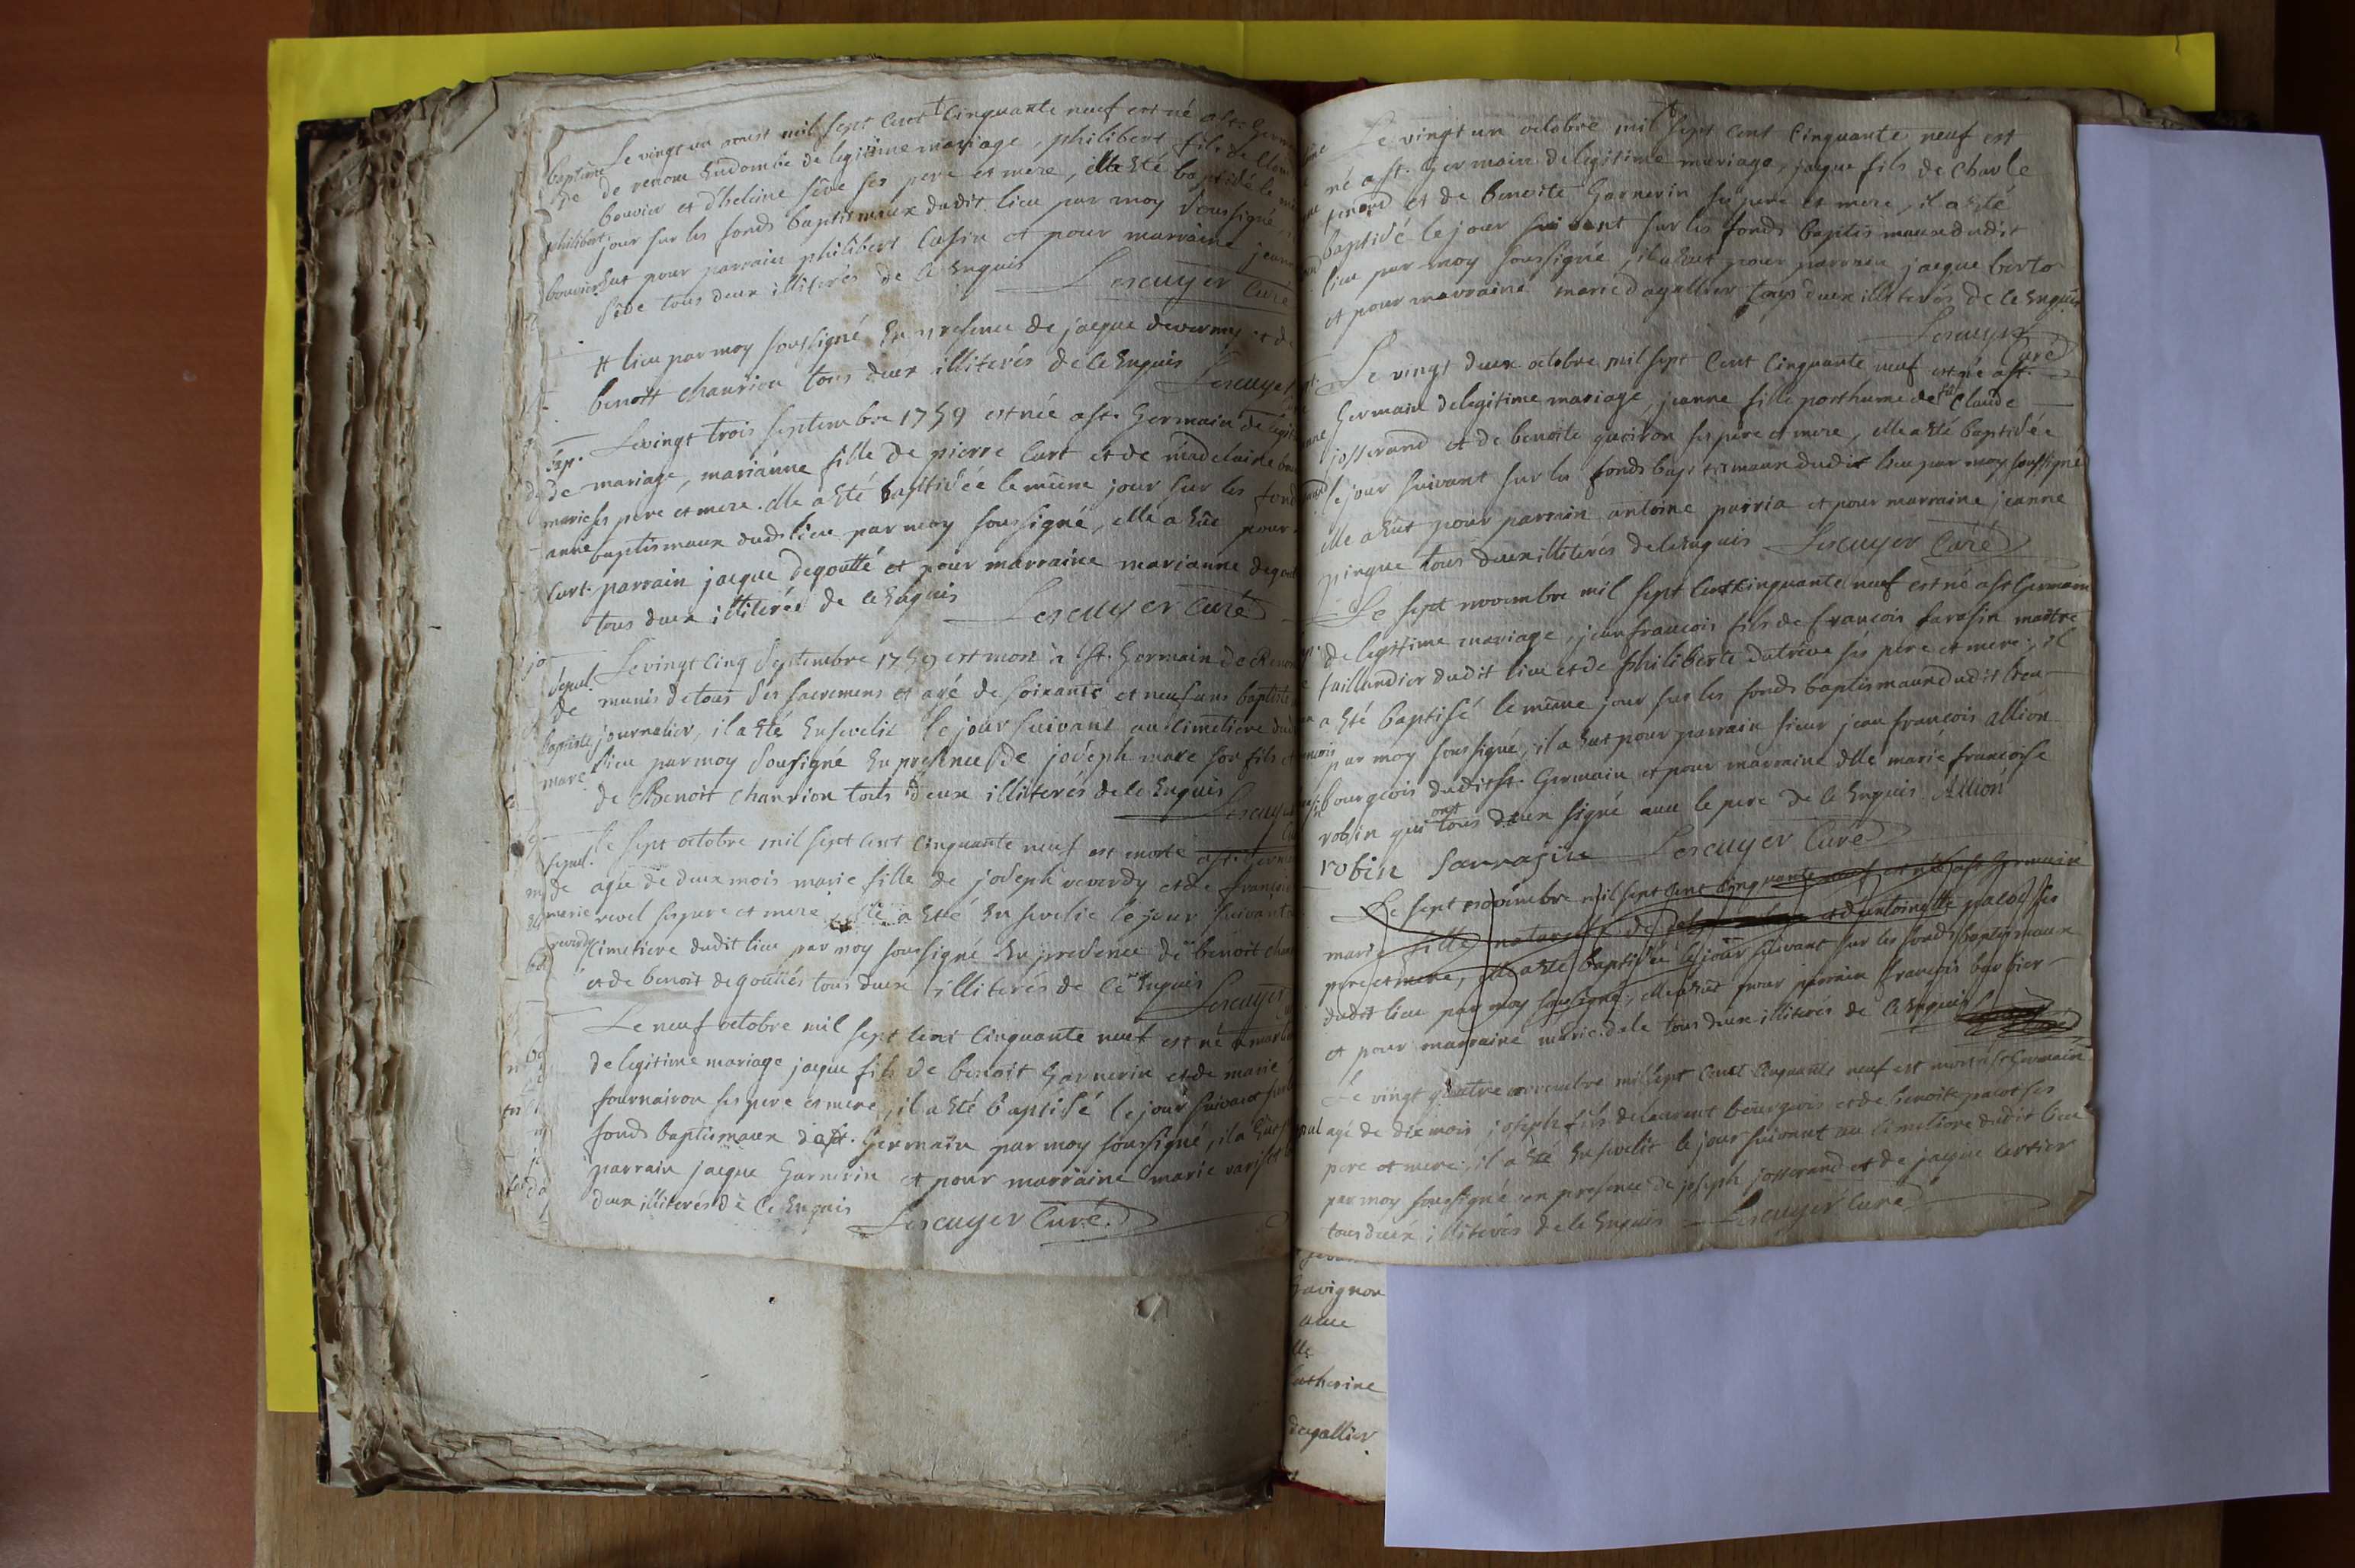 Le vingt un aoust mil sept cent cinquante neuf est né a st. Germ
baptême de renom En dombe de legitime mariage, philibert fils de Clau
de bouvier et d'heleine sève ses pere et mere, il a Eté baptisé le
philibert jour sur les fonds baptismaux dudit lieu par moy soussigné,
bouvier Eut pour parrain philibert Casin et pour marraine jeanne
sève tous deux illiterés de ce Enquis Lescuyer Curé
# lieu par moy soussigné En presence de jacque et de
benoît chanrion tous deux illiterés de ce Enquis Lescuyer
bap. Le vingt trois septembre 1759 est née a st. Germain de legit
de mariage, marianne fille de pierre Curt et de madelaine
marie ses pere et mere. elle a Eté baptisée le même jour sur les fond
anne baptismaux dud. lieu par moy soussigné, elle a Eüe pour
Curt. parrain jacque degoutte et pour marraine marianne degout
tous deux illiterés de ce Enquis Lescuyer Curé
sepul. Le vingt cinq Septembre 1759 est mort a St. Germain de Renom
de munis de tous ses sacremens et agé de soixante et neuf ans baptiste
baptiste journalier, il a Eté Ensevelit le jour suivant au cimetiere dud
marc lieu par moy Sousigné En presence de joseph marc son fils et
de Benoit chanrion tous deux illiterés de ce Enquis Lescuyer
sepul. Le sept octobre mil sept cent cinquante neuf est morte a st. Germ
de agée de deux mois marie fille de joseph reverdy et de francoi
marie revel ses pere et mere, elle a Eté Ensevelie le jour suivant
reverdy cimetiere dudit lieu par moy soussigné En presence de benoit chan
et de benoit degouttes tous deux illiterés de ce Enquis
Lescuyer
Le neuf octobre mil sept cent cinquante neuf est né a
de legitime mariage jacque fils de benoit Garnerin et de marie
fournairon ses pere et mere, il a Eté baptisé le jour suivant sur
fonds baptismaux de st. Germain par moy soussigné, il a Eut
parrain jacque Garnerin et pour marraine marie
deux illiterés de ce Enquis
Lescuyer Curé.
Le vingt un octobre mil sept cent cinquante neuf est
né a st. Germain de legitime mariage, jacque fils de Charle
et de benoite Garnerin ses pere et mere, il a Eté
baptisé le jour suivant sur les fonds baptismaux dudit
lieu par moy soussigné, il a Eut pour parrain jacque
et pour marraine marie dagallier tous deux illiterés de ce Enquis
Lescuyer Curé
Le vingt deux octobre mil sept cent cinquante neuf est né a st.
Germain de legitime mariage, jeanne fille posthume de fut Claude
josserand et de benoite ses pere et mere, elle a Eté baptisée
le jour suivant sur les fonds baptismaux dudit lieu par moy soussigné
elle a Eüt pour parrain antoine parria et pour marraine jeanne
pingue tous deux illiterés de ce Enquis Lescuyer Curé
Le sept novembre mil sept cent cinquante neuf est né a st Germain
de legitime mariage, jean francois fils de francois sarasin maître
taillandier dudit lieu et de philiberte dutrève ses pere et mere, il
a Eté baptisé le même jour sur les fonds baptismaux dudit lieu
par moy soussigné, il a Eut pour parrain sieur jean françois allion
bourgeois dudit st. Germain et pour marraine dlle marie francoise
robin qui ont tous deux signé avec le pere de ce Enquis. Allion
robin Sarrasin Lescuyer Curé
Le sept novembre mil sept cent cinquante neuf est née a st Germain
marie fille naturelle de et d'antoinette pacot ses
pere et mere, elle a Eté baptisée le jour suivant sur les fonds baptismaux
dudit lieu par moy soussigné, elle a Eüt pour parrain françois barbier
et pour marraine marie tous deux illiterés de ce Enquis
Le vingt quatre novembre mil sept cent cinquante neuf est mort a st Germain
agé de dix mois joseph fils de laurent bourgeois et de benoite pacot ses
pere et mere, il a Eté Ensevelit le jour suivant au cimetiere dudit lieu
par moy soussigné en presence de joseph josserand et de jacque cartier
tous deux illiterés de ce Enquis Lescuyer Curé
avec
catherine
degallier